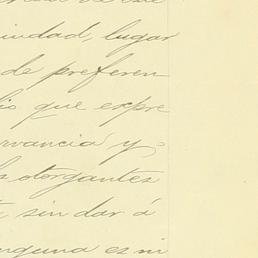 ciudad, lugar
de preferen
que expre
vancia y
otorgantes
sin dar á
nguna es ni